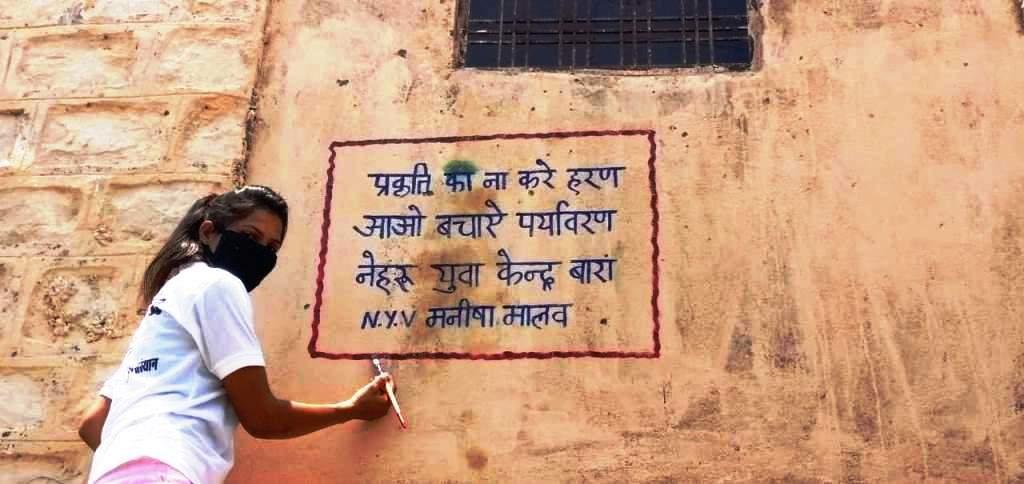 प्रकृति का ना करे हरण
आओ बचाऐ पर्यावरण
नेहरू युवा केन्द्र बारां
N.Y.V मनीषा मालव